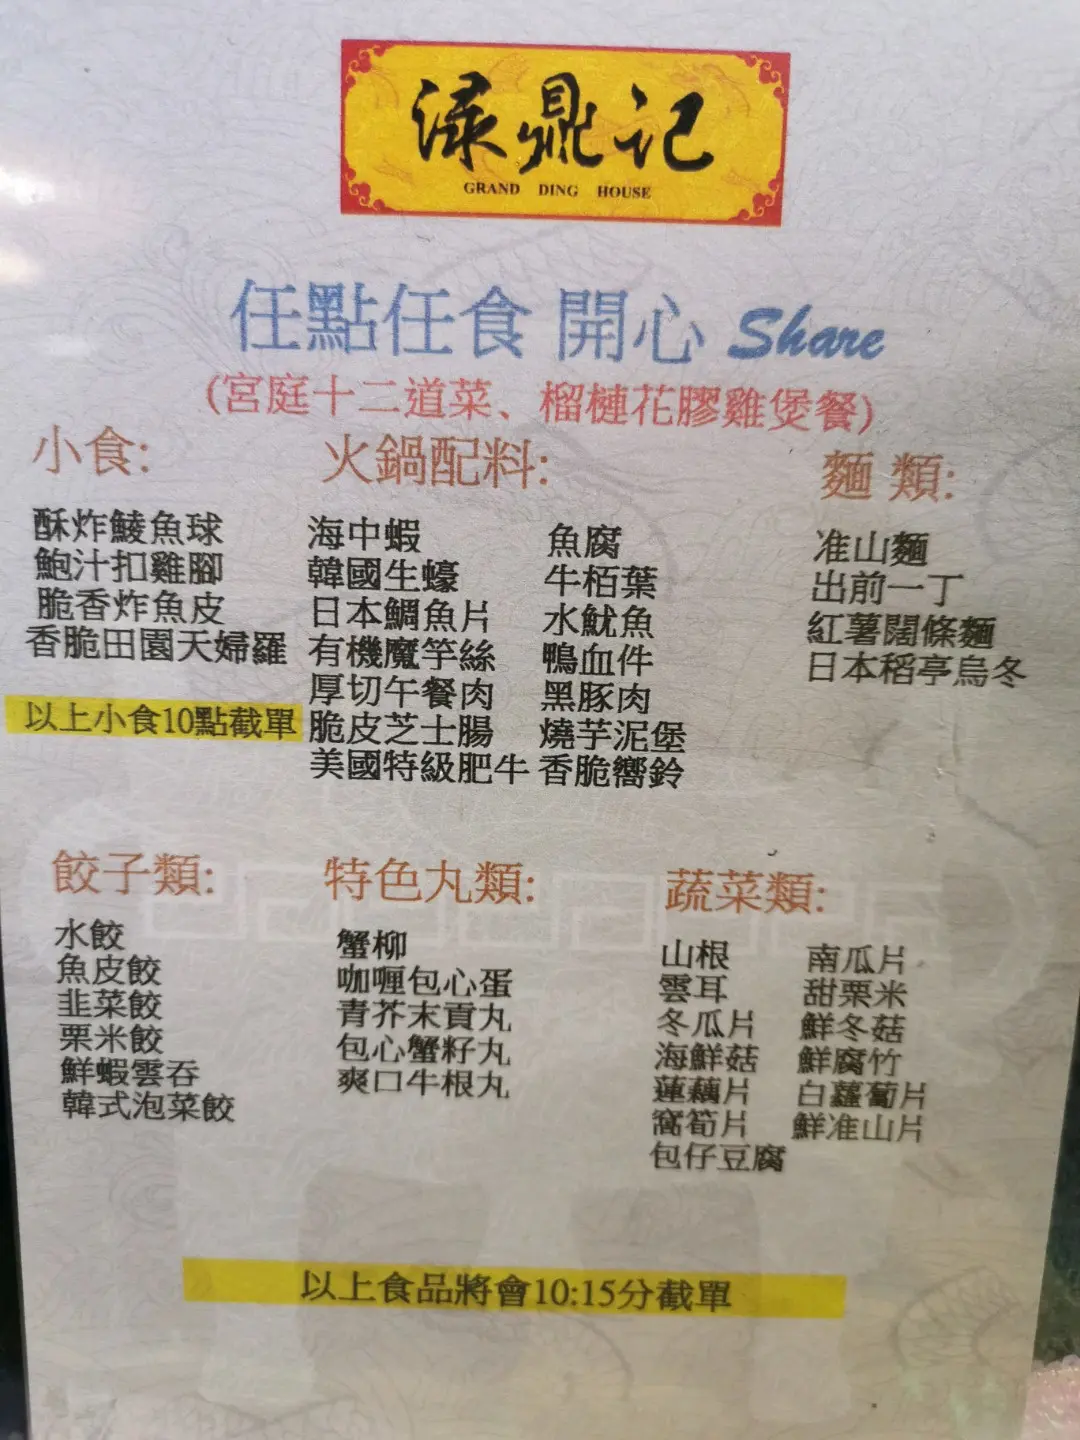 渌鼎记
GRAND DING HOUSE
任點任食 開心 Share
(宮庭十二道菜、榴槤花膠雞煲餐)
小食:
酥炸鯪魚球
鮑汁扣雞腳
脆香炸魚皮
香脆田園天婦羅
以上小食10點截單
火鍋配料:
海中蝦
韓國生蠔
日本鯛魚片
有機魔芋絲
厚切午餐肉
脆皮芝士腸
美國特級肥牛
魚腐
牛栢葉
水魷魚
鴨血件
黑豚肉
燒芋泥堡
香脆嚮鈴
麵 類:
准山麵
出前一丁
紅薯闊條麵
日本稻亭烏冬
餃子類:
水餃
魚皮餃
韭菜餃
粟米餃
鮮蝦雲吞
韓式泡菜餃
特色丸類:
蟹柳
咖喱包心蛋
青芥末貢丸
包心蟹籽丸
爽口牛根丸
蔬菜類:
山根
雲耳
冬瓜片
海鮮菇
蓮藕片
窩筍片
包仔豆腐
南瓜片
甜粟米
鮮冬菇
鮮腐竹
白蘿蔔片
鮮准山片
以上食品將會10:15分截單